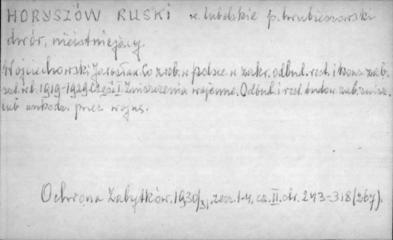 HORYSZÓW RUSKI w. lubelskie p. hrubieszowski
dwór, nieistniejący.
Wojciechowski Jarosław. Co zrob. w Polsce w zakr. odbud. rest. i kons. zab.
1919-1929 Część I Zniszczenia wojenne. Odbud. i rest. budow. zab. zniszcz.
lub uszkodz. przez wojnę.
Ochrona Zabytków. 1930/31, zesz. 1-4, cz. II, str. 243-318 (267).